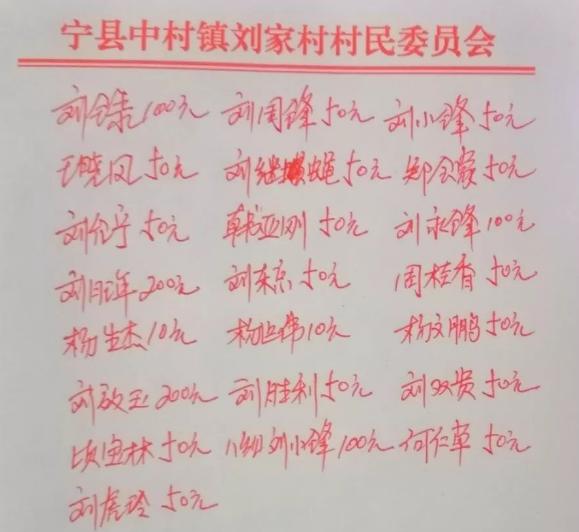 宁县中村镇刘家村村民委员会
刘 100元 刘周锋 50元 刘小锋 50元
王晓凤 50元 刘继 50元 郑会霞 50元
刘 50元 韩亚刚 50元 刘永锋 100元
刘 年 200元 刘东京 50元 周桂香 50元
杨生杰 10元 杨 10元 杨文鹏 50元
刘 玉 200元 刘胜利 50元 刘双贵 50元
宝林 50元 八组刘小锋 100元 何仁草 50元
刘虎玲 50元